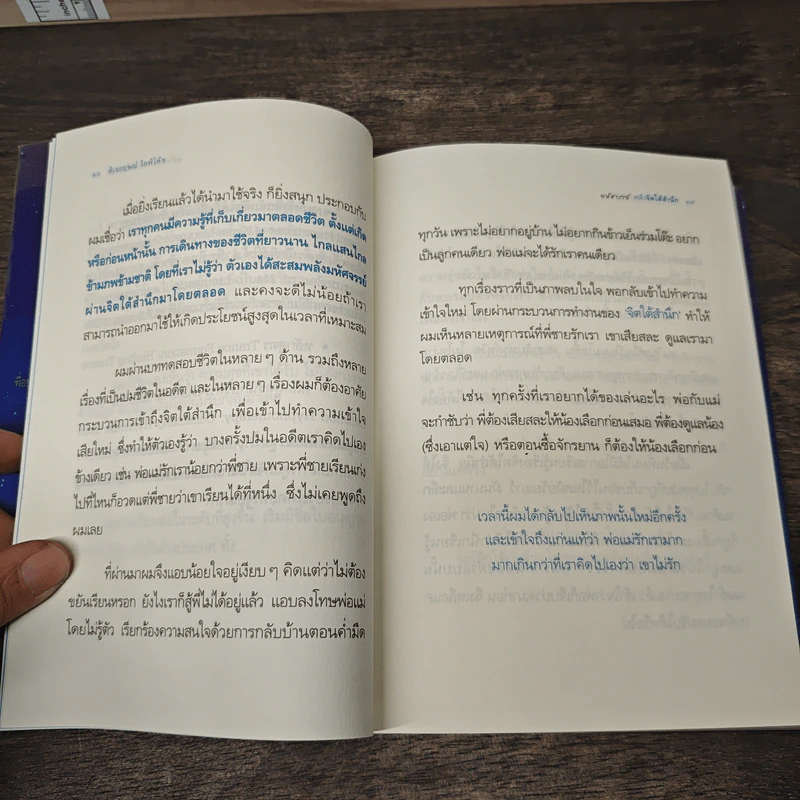 เมื่อยิ่งเรียนแล้วได้นำมาใช้จริง ก็ยิ่งสนุก ประกอบกับ
ผมเชื่อว่า เราทุกคนมีความรู้ที่เก็บเกี่ยวมาตลอดชีวิต ตั้งแต่เกิด
หรือก่อนหน้านั้น การเดินทางของชีวิตที่ยาวนาน ไกลแสนไกล
ข้ามภพข้ามชาติ โดยที่เราไม่รู้ว่า ตัวเองได้สะสมพลังมหัศจรรย์
ผ่านจิตใต้สำนึกมาโดยตลอด และคงจะดีไม่น้อยถ้าเรา
สามารถนำออกมาใช้ให้เกิดประโยชน์สูงสุดในเวลาที่เหมาะสม
ผมผ่านบททดสอบชีวิตในหลายๆ ด้าน รวมถึงหลาย
เรื่องที่เป็นปมชีวิตในอดีต และในหลายๆ เรื่องผมก็ต้องอาศัย
กระบวนการเข้าถึงจิตใต้สำนึก เพื่อเข้าไปทำความเข้าใจ
เสียใหม่ ซึ่งทำให้ตัวเองรู้ว่า บางครั้งปมในอดีตเราคิดไปเอง
ข้างเดียว เช่น พ่อแม่รักเราน้อยกว่าพี่ชาย เพราะพี่ชายเรียนเก่ง
ไปที่ไหนก็อวดแต่พี่ชายว่าเขาเรียนได้ที่หนึ่ง ซึ่งไม่เคยพูดถึง
ผมเลย
ที่ผ่านมาผมจึงแอบน้อยใจอยู่เงียบๆ คิดแต่ว่าไม่ต้อง
ขยันเรียนหรอก ยังไงเราก็สู้พี่ไม่ได้อยู่แล้ว แอบลงโทษพ่อแม่
โดยไม่รู้ตัว เรียกร้องความสนใจด้วยการกลับบ้านตอนค่ำมืด
จิตใต้สำนึก ๑๗
ทุกวัน เพราะไม่อยากอยู่บ้าน ไม่อยากกินข้าวเย็นร่วมโต๊ะ อยาก
เป็นลูกคนเดียว พ่อแม่จะได้รักเราคนเดียว
ทุกเรื่องราวที่เป็นภาพลบในใจ พอกลับเข้าไปทำความ
เข้าใจใหม่ โดยผ่านกระบวนการทำงานของ 'จิตใต้สำนึก' ทำให้
ผมเห็นหลายเหตุการณ์ที่พี่ชายรักเรา เขาเสียสละ ดูแลเรามา
โดยตลอด
เช่น ทุกครั้งที่เราอยากได้ของเล่นอะไร พ่อกับแม่
จะกำชับว่า พี่ต้องเสียสละให้น้องเลือกก่อนเสมอ พี่ต้องดูแลน้อง
(ซึ่งเอาแต่ใจ) หรือตอนซื้อจักรยาน ก็ต้องให้น้องเลือกก่อน
เวลานี้ผมได้กลับไปเห็นภาพนั้นใหม่อีกครั้ง
และเข้าใจถึงแก่นแท้ว่า พ่อแม่รักเรามาก
มากเกินกว่าที่เราคิดไปเองว่า เขาไม่รัก